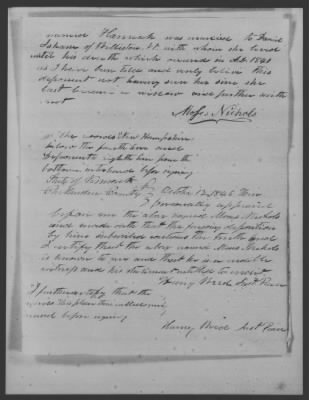 named Hannah was married to David
Isham of Williston Vt. with whom she lived
until his death which occured in A.D. 1840
as I have been told and verily believe this
deponent not having seen her since she
last became a widow and further saith
not
Moses Nichols
the words New Hampshire
below the fourth line and
eighth line from the
bottom interlined before signing
State of Vermont
Chittenden County October 12 1846 Then
personally appeared
before me the above named Moses Nichols
and made oath that the foregoing deposition
by him subscribed contains the truth and
I certify that the above named Moses Nichols
is known to me and that he is a credible
witness and his statement entitled to credit
Henry Just Peace
I further certify that the
words this place then called
before signing
Henry Just Peace